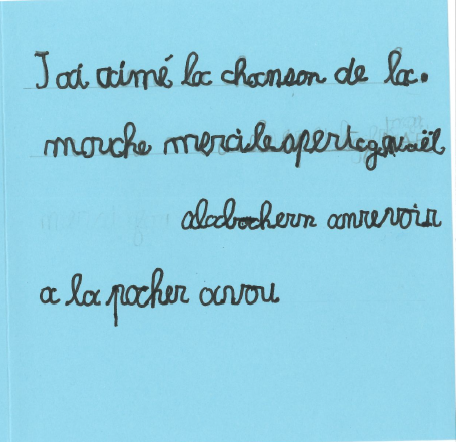 J ai aimé la chanson de la.
mouche merci le spertcgnaël
alabochern anrevoir
a la pocher arvou